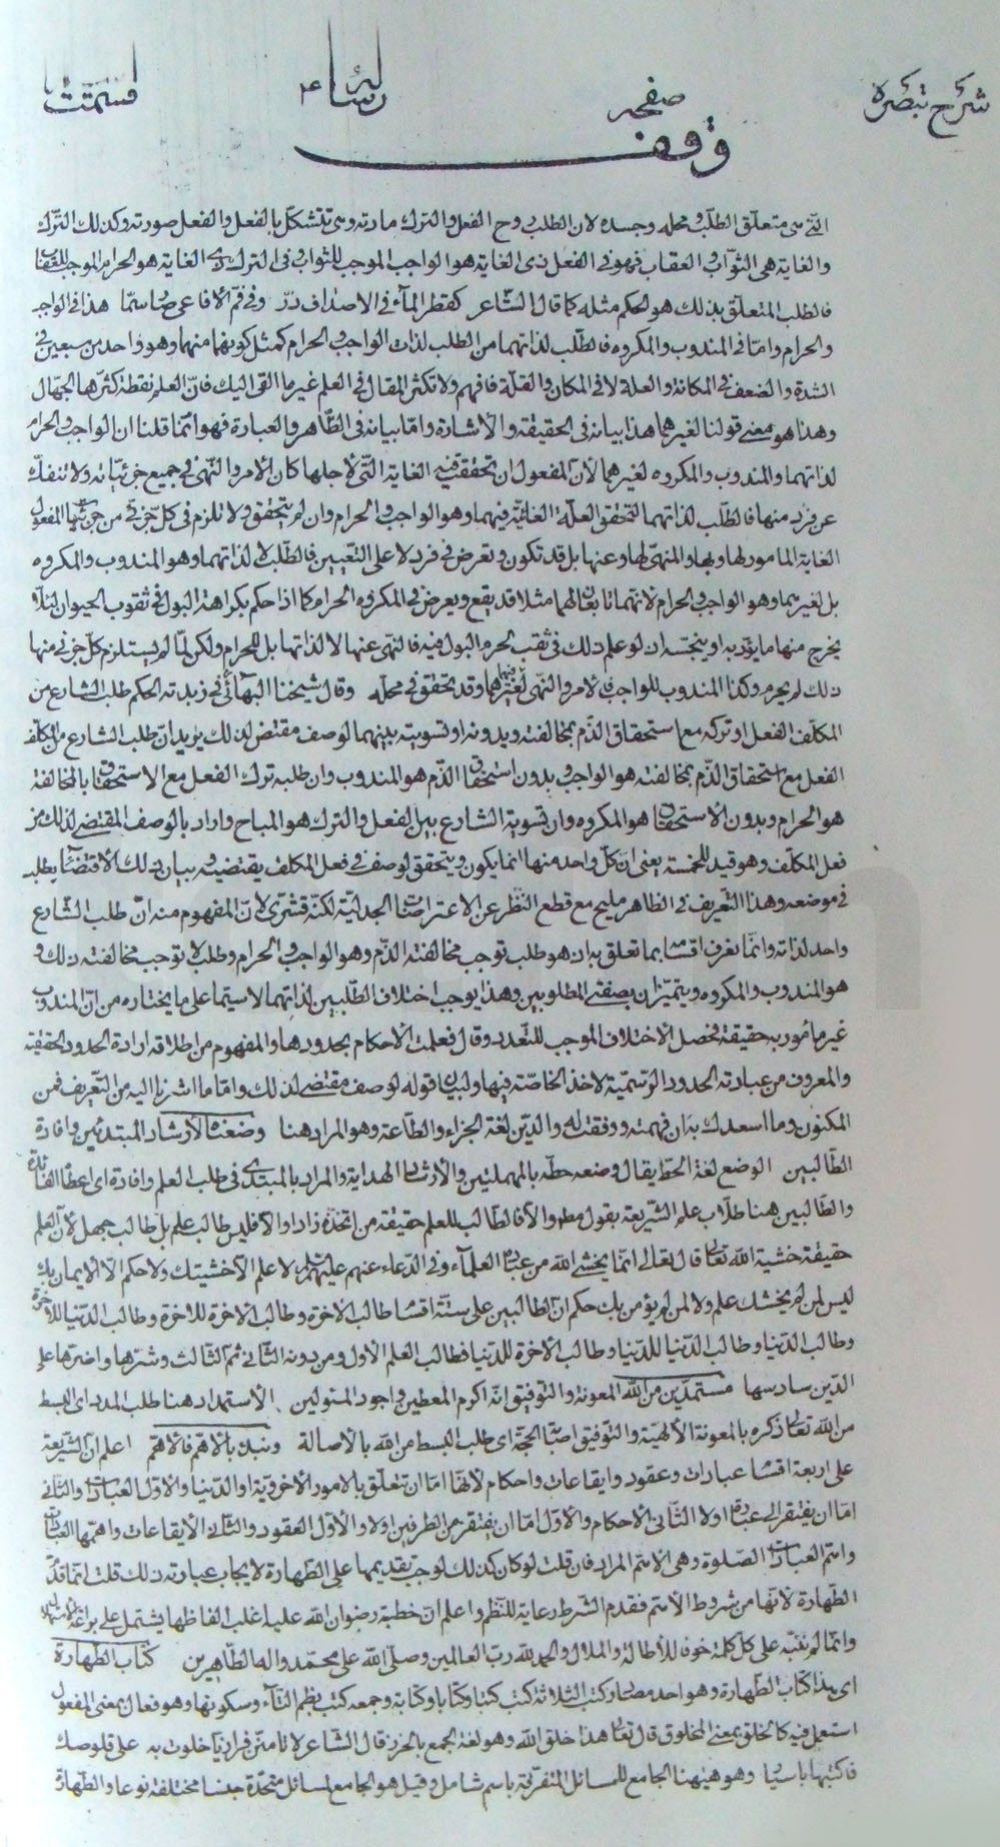 شرح تبصره صفحه رسائل ۴ قسمت
وقف
التی هی متعلق الطلب و محله وجسده لان الطلب روح الفعل والترك مادته وهی تتشكل بالفعل والفعل صورته وكذلك الترك
والغایة هی الثواب و العقاب فهو فی الفعل ذی الغایة هو الواجب الموجب للثواب و فی الترك ذی الغایة هو الحرام الموجب للعقاب
فالطلب المتعلق بذلك هو الحكم مثله كما قال الشاعر كقطر الماء فی الاصداف در وفی فم الافاعی صار سما هذا فی الواجب
والحرام واما فی المندوب والمكروه فالطلب لذاتهما من الطلب لذات الواجب و الحرام كمثل كونهما منهما وهو واحد من سبعین فی
الشدة والضعف فی المكانة والعلة لا فی المكان والقلة فافهم ولا تكثر المقال فی العلم غیر ما القی الیك فان العلم نقطة كثرها الجهال
وهذا هو معنی قولنا لغیرهما هذا بیانه فی الحقیقة و الاشارة واما بیانه فی الظاهر والعبارة فهو انما قلنا ان الواجب و الحرام
لذاتهما والمندوب والمكروه لغیرهما لان المفعول ان تحقق فیه الغایة التی لاجلها كان الامر والنهی فی جمیع جزئیاته ولا تنفك
عن فرد منها فالطلب لذاتهما لتحقق العلة الغائیة فیهما وهو الواجب و الحرام وان لم یتحقق ولا تلزم فی كل جزئی من جزئیات المفعول
الغایة المامور لها وبها والمنهی لها وعنها بل قد تكون وتعرض فی فرد لا علی التعیین فالطلب لا لذاتهما وهو المندوب والمكروه
بل لغیرهما وهو الواجب و الحرام لانهما تابعان لهما مثلا قد یقع ویعرض فی المكروه الحرام كما اذا حكم بكراهة البول فی ثقوب الحیوان لئلا
یخرج منها ما یؤذیه او ینجسه اذ لو علم ذلك فی ثقب لحرم البول فیه فالنهی عنها لا لذاتها بل للحرام ولكن لما لم یستلزم كل جزئی منها
ذلك لم یحرم وكذا المندوب للواجب فالامر والنهی فیهما لغیرهما وقد یتحقق فی محله وقال شیخنا البهائی فی زبدته الحكم طلب الشارع من
المكلف الفعل او تركه مع استحقاق الذم بمخالفته وبدونه او تسویته بینهما لوصف مقتض لذلك یرید ان طلب الشارع من المكلف
الفعل مع استحقاق الذم بمخالفته هو الواجب و بدون استحقاق الذم هو المندوب وان طلبه ترك الفعل مع الاستحقاق بالمخالفة
هو الحرام و بدون الاستحقاق هو المكروه وان تسویة الشارع بین الفعل والترك هو المباح واراد بالوصف المقتضی لذلك من
فعل المكلف وهو قید للخمسة یعنی ان كل واحد منها انما یكون ویتحقق لوصف فی فعل المكلف یقتضیه و بیان ذلك الاقتضاء یطلب
فی موضعه وهذا التعریف فی الظاهر ملیح مع قطع النظر عن الاعتراضات الجدلیة لكنه قشری لان المفهوم منه ان طلب الشارع
واحد لذاته وانما یعرف اقسامه بما تعلق به ان هو طلب توجب مخالفته الذم وهو الواجب و الحرام وطلب لا توجب مخالفته ذلك و
هو المندوب والمكروه ویتمیزان بصفتی المطلوبین وهذا یوجب اختلاف الطلبین لذاتهما لا سیما علی ما یختاره من ان المندوب
غیر مامور به حقیقة فحصل الاختلاف الموجب للتعدد وقال فعلمت الاحكام بحدودها والمفهوم من اطلاقه ارادة الحدود الحقیقیة
والمعروف من عبارته الحدود الرسمیة لاخذ الخاصة فیها ولبیان قوله لوصف مقتضی لذلك واما ما اشرنا الیه من التعریف فمن
المكنون وما اسعدك به ان فهمته ووفقت له والدین لغة الجزاء والطاعة وهو المراد هنا وضعته لارشاد المبتدئین وافادة
الطالبین الوضع لغة الحط یقال وضعه حطه بالمهملتین والارشاد الهدایة والمراد بالمبتدی فی طلب العلم وافادة ای اعطاء الفائدة
والطالبین هنا طلاب علم الشریعة بقول مطلق والا فالطالب للعلم حقیقة من اتخذه زادا والا فلیس طالب علم بل طالب جهل لان العلم
حقیقة خشیة الله تعالی قال تعالی انما یخشی الله من عباده العلماء وفی الدعاء عنهم علیهم السلام لا علم الا خشیتك ولا حكم الا الایمان بك
لیس لمن لم یخشك علم ولا لمن لم یؤمن بك حكم ان الطالبین علی ستة اقسام طالب الاخرة وطالب الاخرة للاخرة وطالب الدنیا للاخرة
وطالب الدنیا وطالب الدنیا للدنیا وطالب الاخرة للدنیا فطالب العلم الاول ومن دونه الثانی ثم الثالث وشرها واضرها علی
الدین سادسها مستمدین من الله المعونة والتوفیق انه اكرم المعطین واجود المسئولین الاستمداد هنا طلب المدد ای البسط
من الله تعالی ذكره بالمعونة الالهیة والتوفیق اصابة الحجة ای طلب البسط من الله بالاصالة ونبدء بالاهم فالاهم اعلم ان الشریعة
علی اربعة اقسام عبادات وعقود وایقاعات واحكام لانها اما ان تتعلق بالامور الاخرویة او الدنیا والاول العبادات والثانی
اما ان یفتقر الی عبارة اولا الثانی الاحكام والاول اما ان یفتقر من الطرفین اولا والاول العقود والثانی الایقاعات واهمها العبادات
واهم العبادات الصلوة وهی الاهم المراد فان قلت لو كان كذلك لوجب تقدیمها علی الطهارة لایجاب عبارته ذلك قلت انما قدم
الطهارة لانها من شروط الاهم فقدم الشرط رعایة للنظم واعلم ان خطبة رضوان الله علیه اغلب الفاظها یشتمل علی براعة الاستهلال
وانما لم ننبه علی كل كلمة خوفا للاطالة والملال والحمد لله رب العالمین وصلی الله علی محمد واله الطاهرین كتاب الطهارة
ای هذا كتاب الطهارة وهو احد مصادر كتب الثلاثة كتب كتبا وكتابا وكتابة وجمعه كتب بضم التاء وسكونها وهو فعال بمعنی المفعول
استعمل فیه كالخلق بمعنی المخلوق قال تعالی هذا خلق الله وهو لغة الجمع بالحرز قال الشاعر لا تامنن فزاریا خلوت به علی قلوصك
فاكتبها باسیار وهو هیهنا الجامع للمسائل المتفرقة باسم شامل وقیل هو الجامع لمسائل متحدة جنسا مختلفة نوعا والطهارة